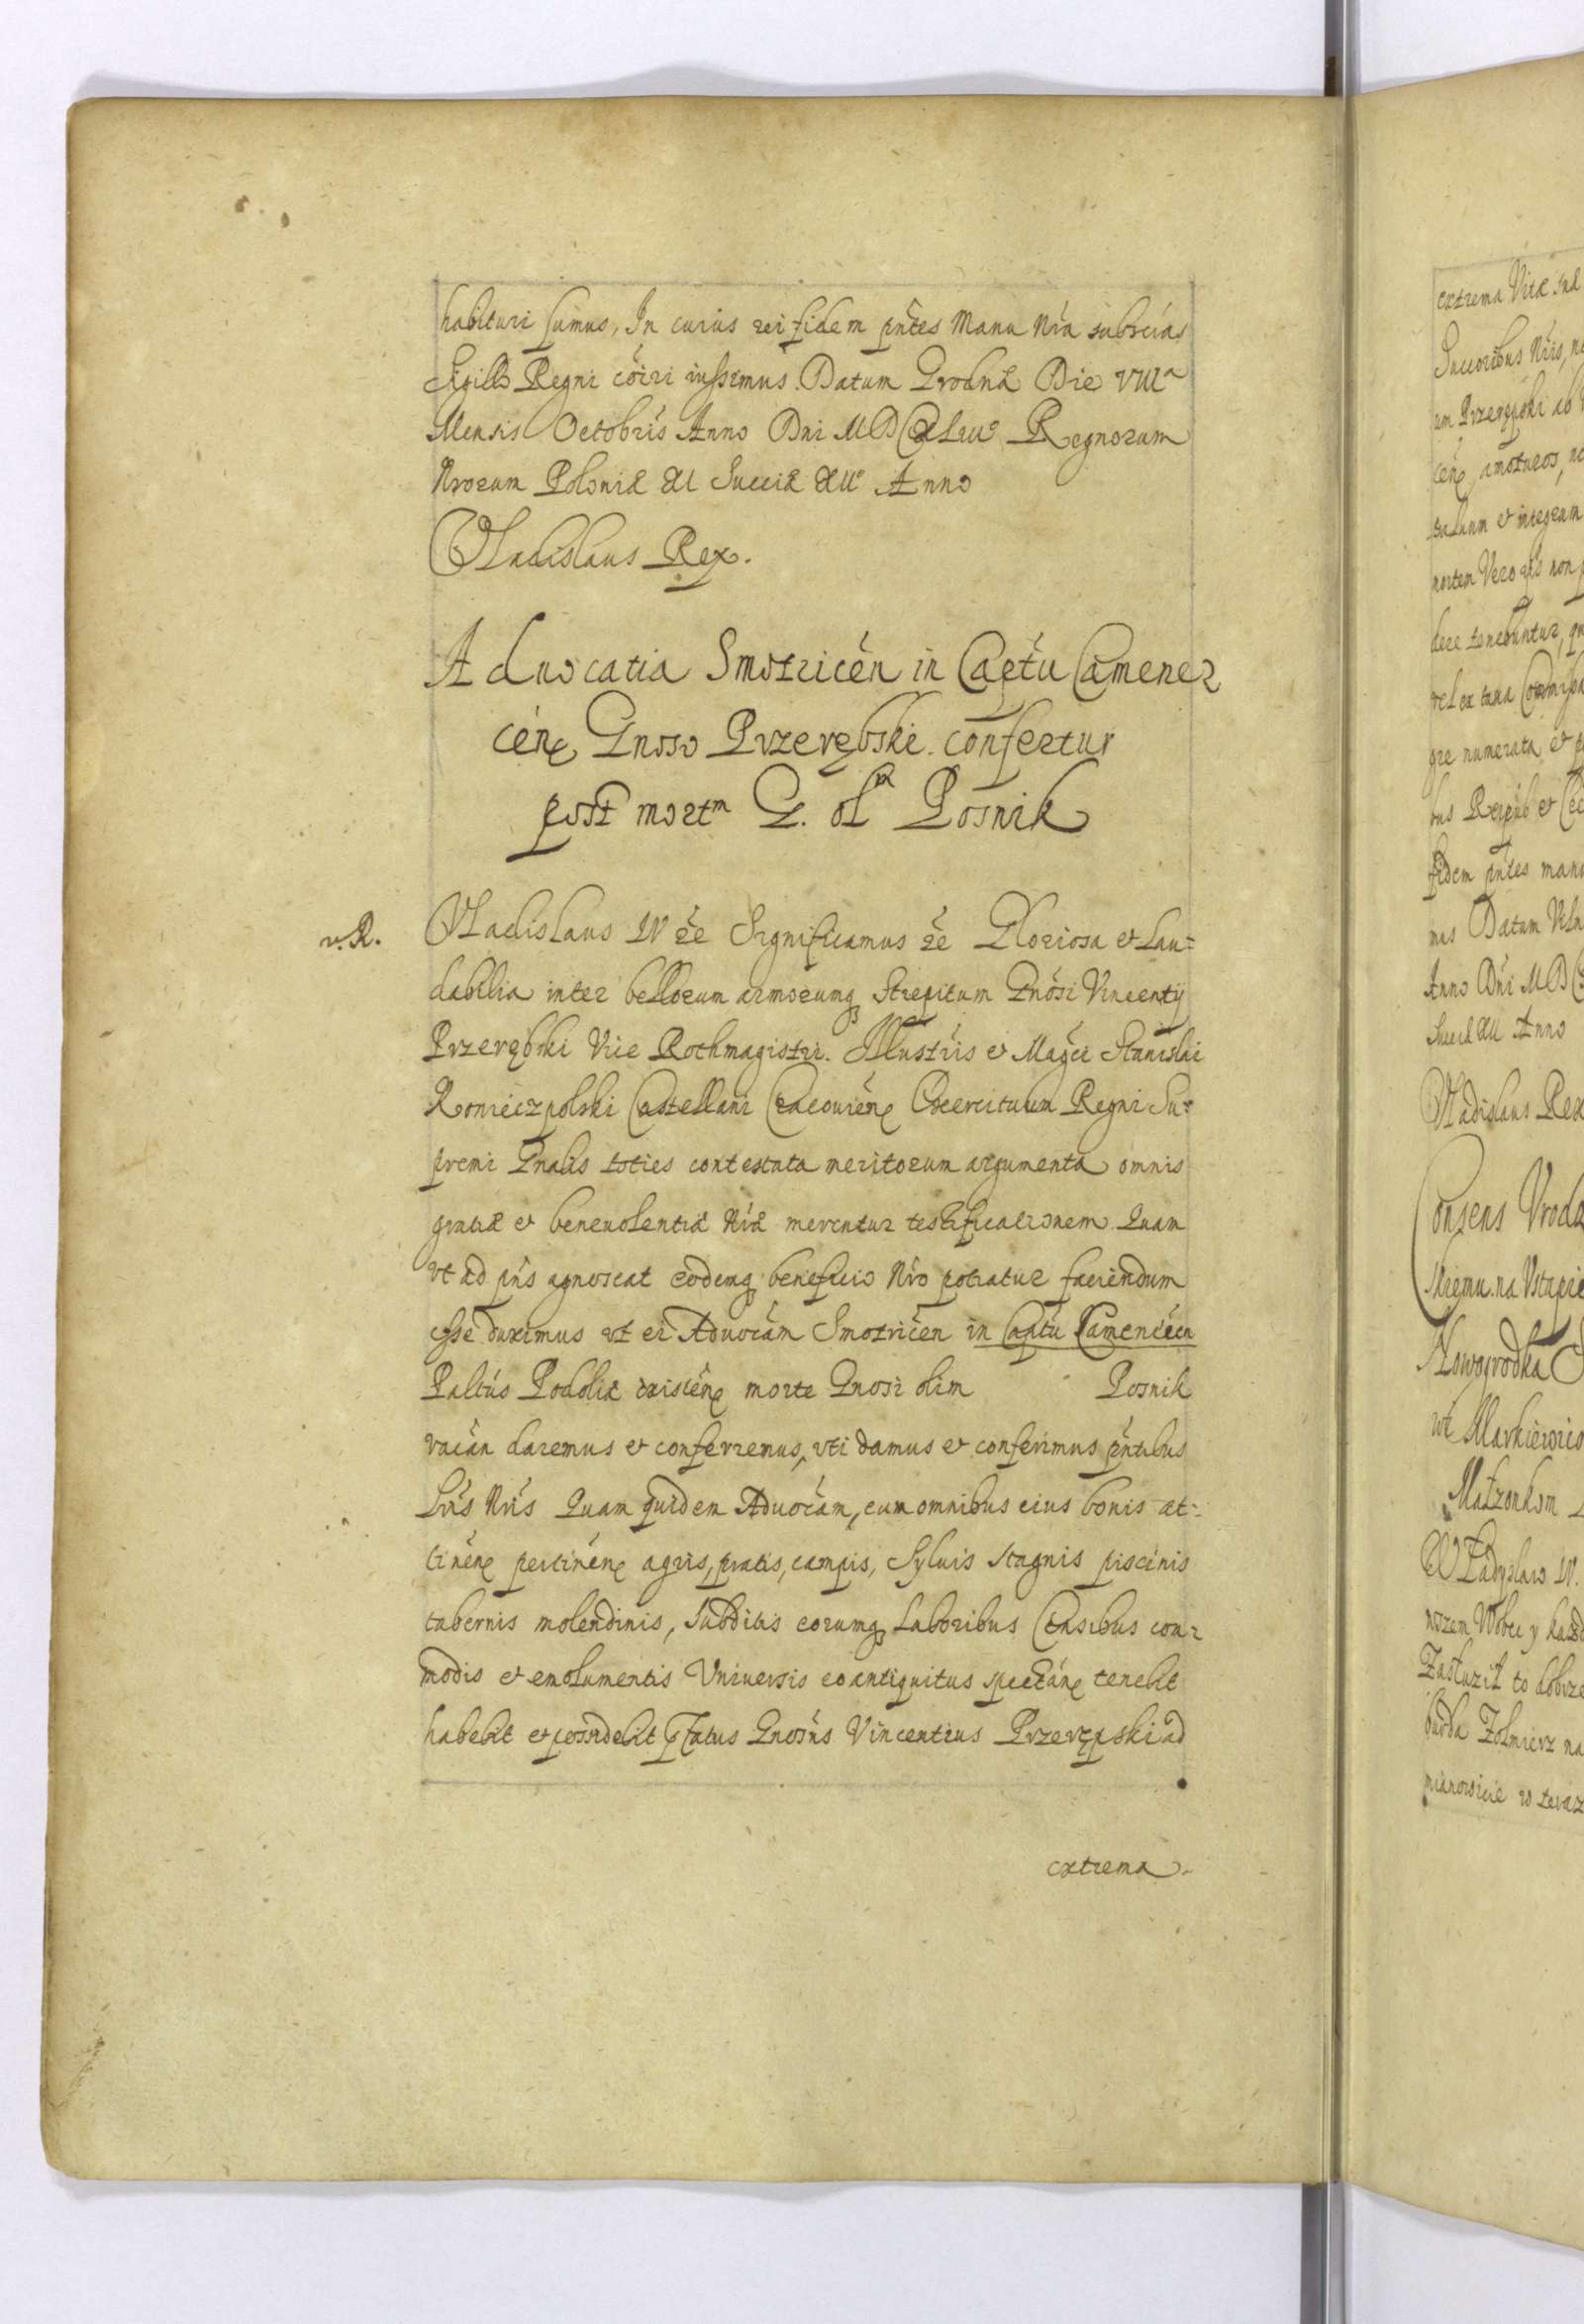 habituri sumus, In cuius rei fidem pn̄tes Manu Nr̄a subscr̄as
Sigillo Regni cōīri iussimus. Datum Grodnæ Die VIIIa
Mensis Octobris Anno Dni MDCXLIIIIo Regnorum
Nrorum Poloniæ XII Sueciæ XIIo Anno
Vladislaus Rex.
Aduocatia Smotricēn in Captū Camenez
cēn Gnoso Przerębski confertur
post mortm G. ol Posnik
v. R.
Vladislaus IV etc̄ Significamus etc̄ Gloriosa et Lau-
dabilia inter bellorum armorumq strepitum Gnōsi Vincentij
Przerębski Vice Rothmagistri. Illustris et Magci Stanislai
Koniecpolski Castellani Cracouiēn Exercituum Regni Su-
premi Gnalis toties contestata meritorum argumenta omnis
gratiæ et beneuolentiæ Nr̄æ merentur testificationem. Quam
vt ad pn̄s agnoscat eodemq beneficio Nr̄o potiatur faciendum
esse duximus vt ei Aduocām Smotricēn in Captū Camenēcēn
Paltūs Podoliæ existēn morte Gnosi olim Posnik
vacān daremus et conferremus, vti damus et conferimus pn̄tibus
Lr̄is Nr̄is Quam quidem Aduocām, cum omnibus eius bonis at-
tinēn pertinēn agris, pratis, campis, Syluis stagnis piscinis
tabernis molendinis, subditis eorumq Laboribus Censibus com-
modis et emolumentis Vniuersis eo antiquitus spectān tenebit
habebit et possidebit pfatus Gnosus Vincentius Przerępski ad
extrema

extrema Vitæ suæ
Succoribus Nr̄is,
um Przerępski ab
cēn amoturos,
saluum et integrum
mortem Vero eis non
dere tenebuntur,
vel ex taxa
gre numerata et
bus Reipub et
fidem pn̄tes manu
mus Datum Viln
Anno Dn̄i MDC
Sueciæ XII Anno
Vladislaus Rex
Consens Vrodz
skiemu na Vstąpie
Nowogrodka
wi Markiewico
Małzonkom
Władyslaw IV.
wszem Wobec y kazd
Zasłuził to dobrze
Zołnierz na
mianowicie w teraz